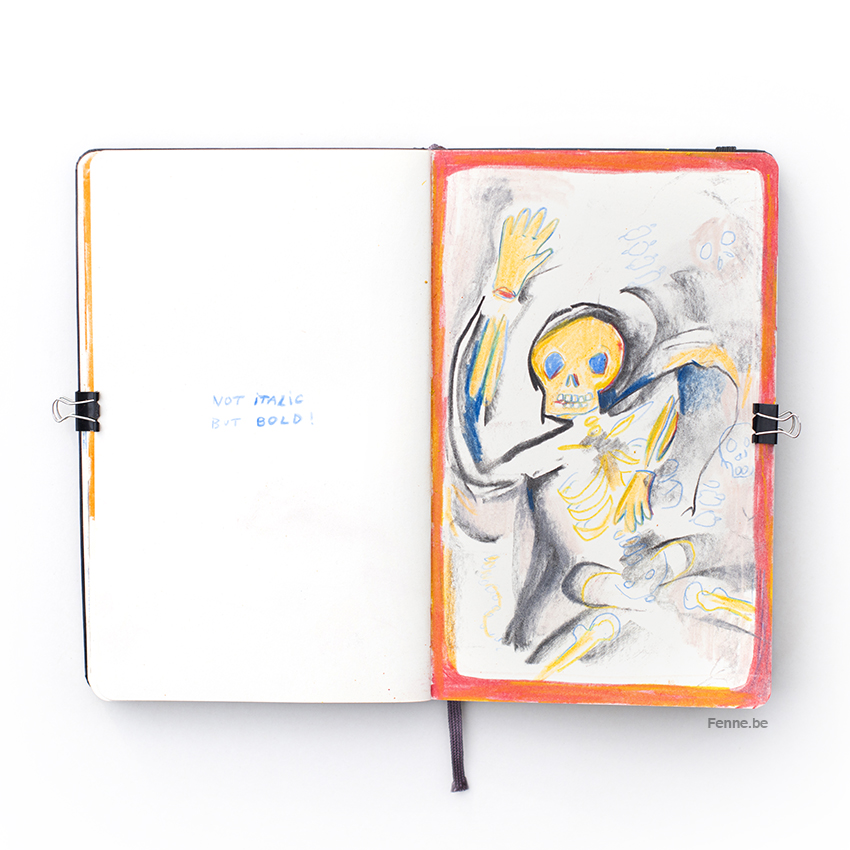 NOT iTALiC
BUT BOLD!
Fenne.be